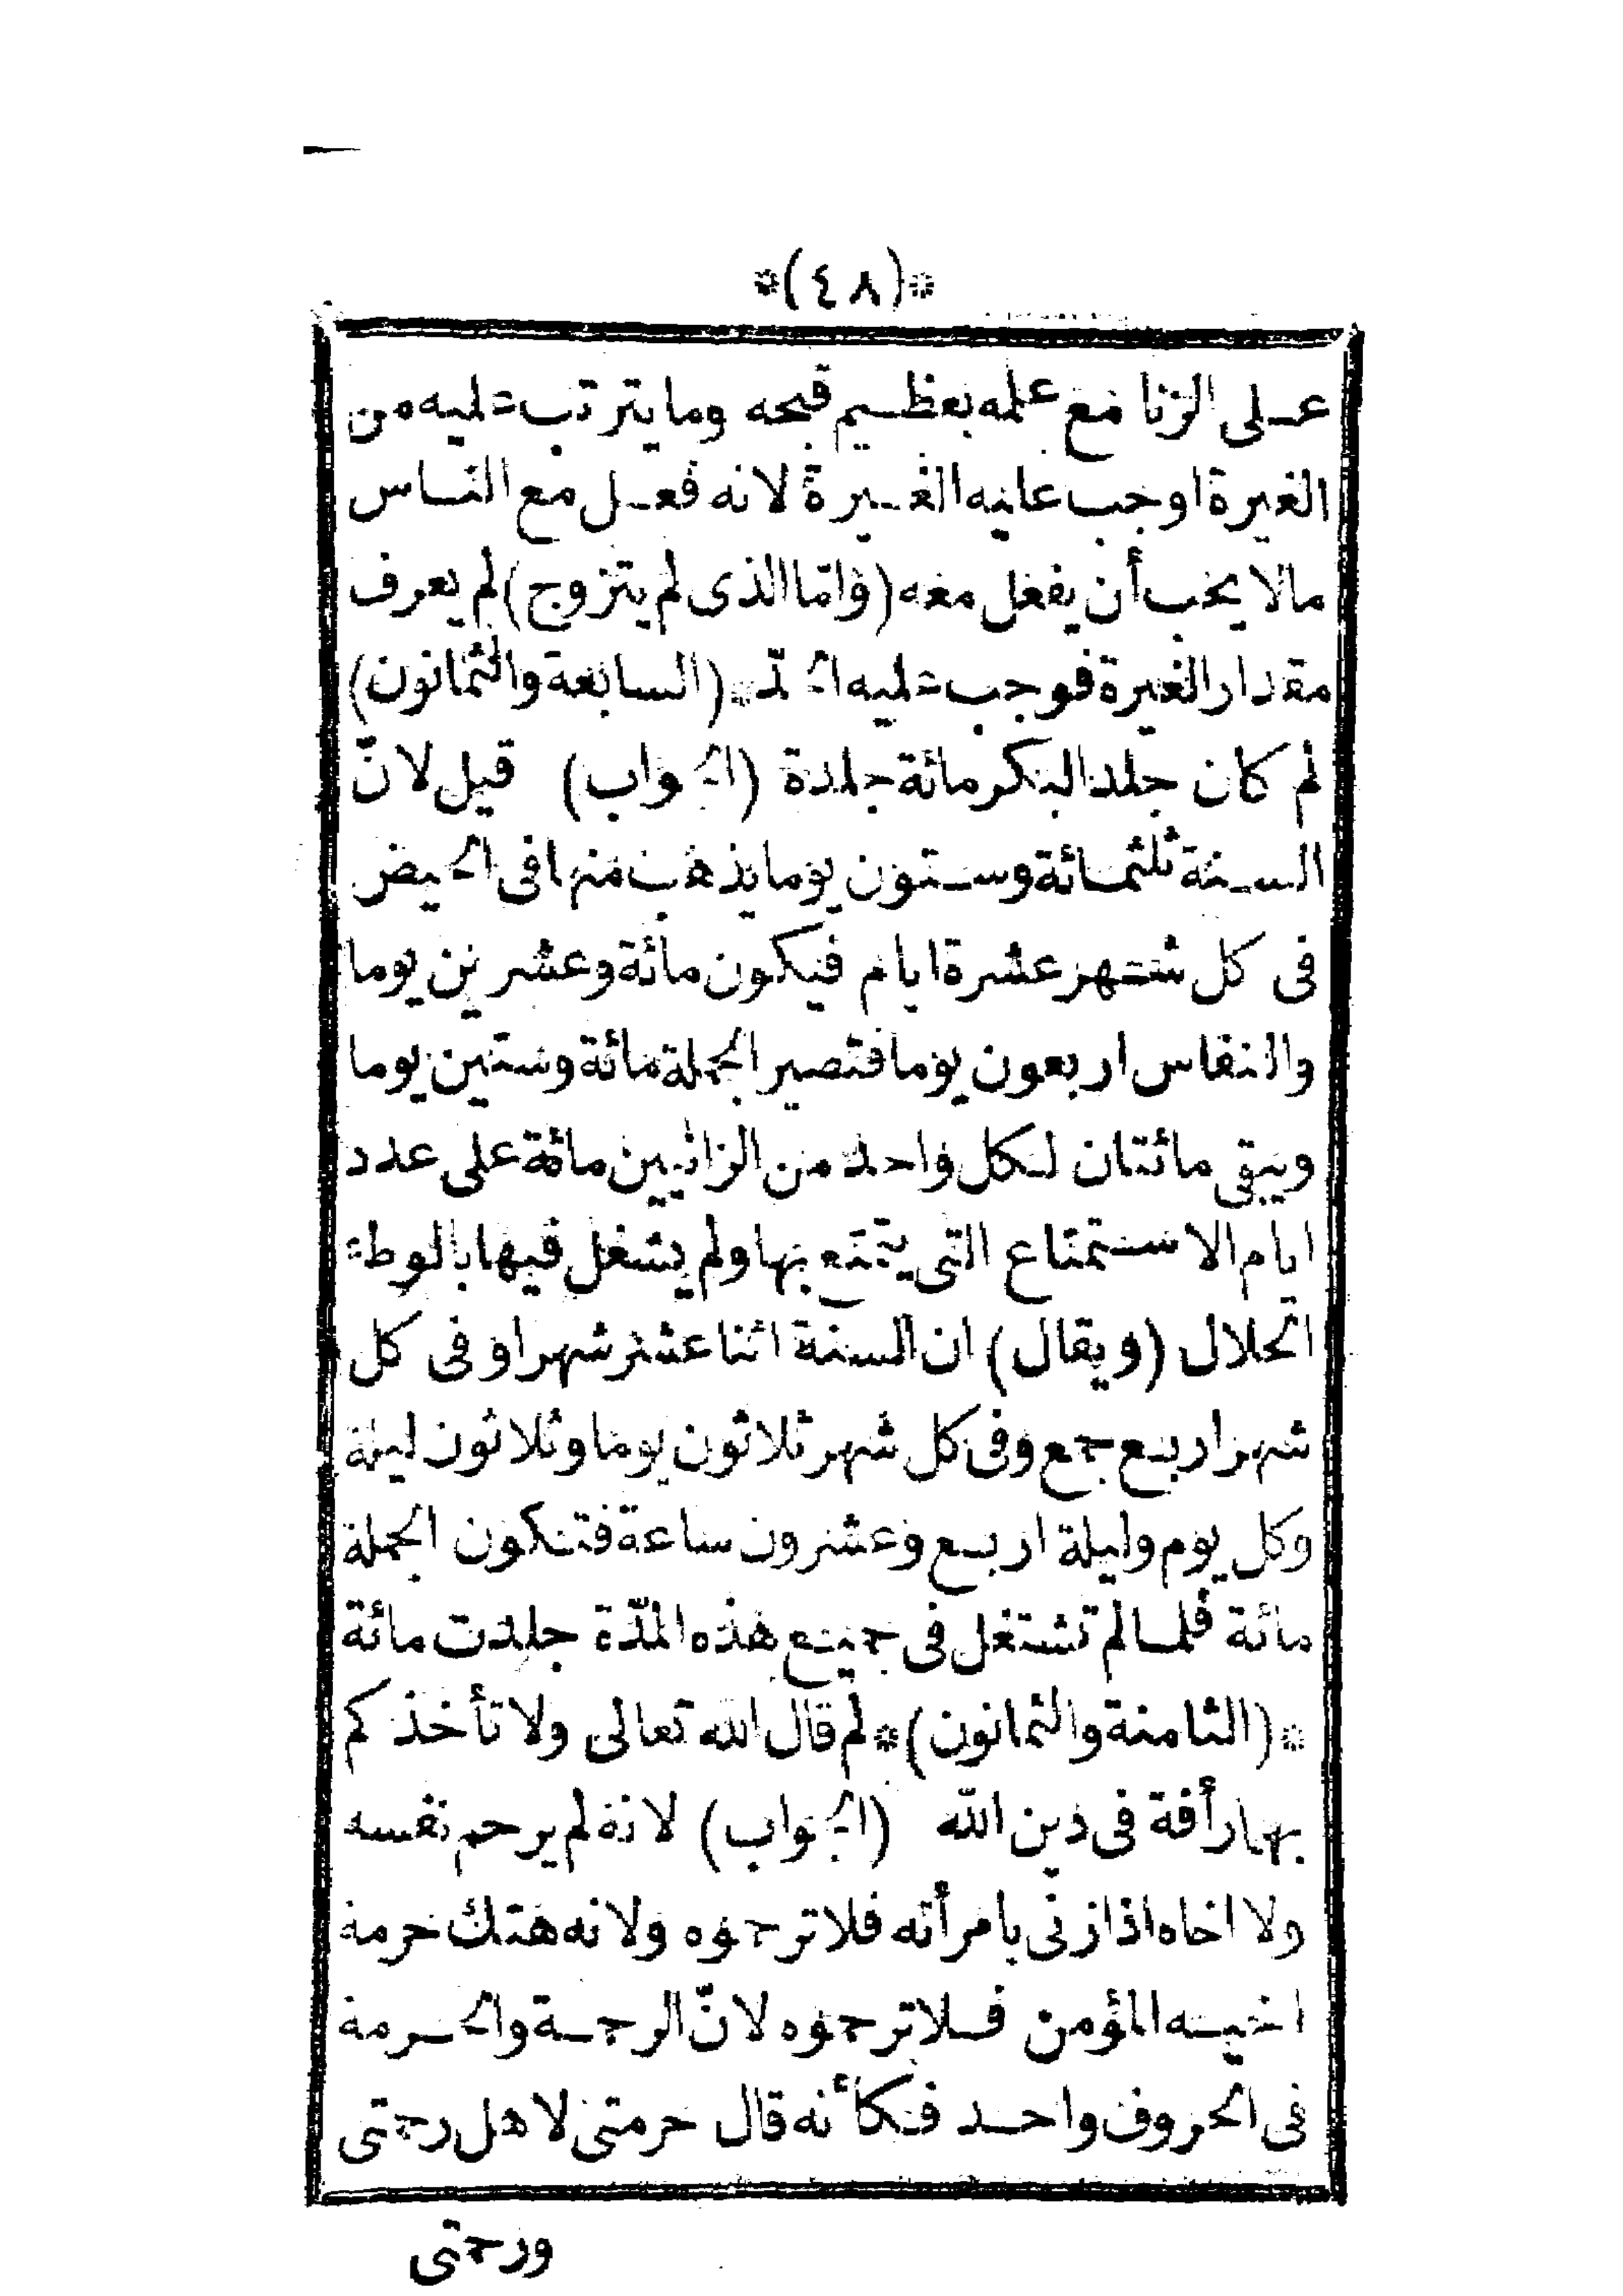 *(٤٨)*
على الزنا مع علمه بعظيم قبحه وما يترتب عليه من
الغيرة اوجب عليه الغيرة لانه فعل مع الناس
مالا يحب أن يفعل معه (وامّا الذى لم يتزوج) لم يعرف
مقدار الغيرة فوجب عليه الجلد * (السابعة والثمانون)
لم كان جلد البكر مائة جلدة (الجواب) قيل لانّ
السنة ثلثمائة وستون يوما يذهب منها فى الحيض
فى كل شهر عشرة ايام فيكون مائة وعشرين يوما
والنفاس اربعون يوما فتصير الجملة مائة وستين يوما
ويبقى مائتان لكل واحد من الزانيين مائة على عدد
ايام الاستمتاع التى يتمتع بها ولم يشغل فيها بالوطء
الحلال (ويقال) ان السنة اثنا عشر شهرا وفى كل
شهر اربع جمع وفى كل شهر ثلاثون يوما وثلاثون ليلة
وكل يوم وليلة اربع وعشرون ساعة فتكون الجملة
مائة فلما لم تشتغل فى جميع هذه المدّة جلدت مائة
*(الثامنة والثمانون)* لم قال الله تعالى ولا تأخذكم
بهما رأفة فى دين الله (الجواب) لانه لم يرحم نفسه
ولا اخاه اذا زنى بامرأته فلا ترحموه ولانه هتك حرمة
اخيه المؤمن فلا ترحموه لانّ الرحمة والحرمة
فى الحروف واحد فكأنه قال حرمتى لاهل رحمتى
ورحمتى